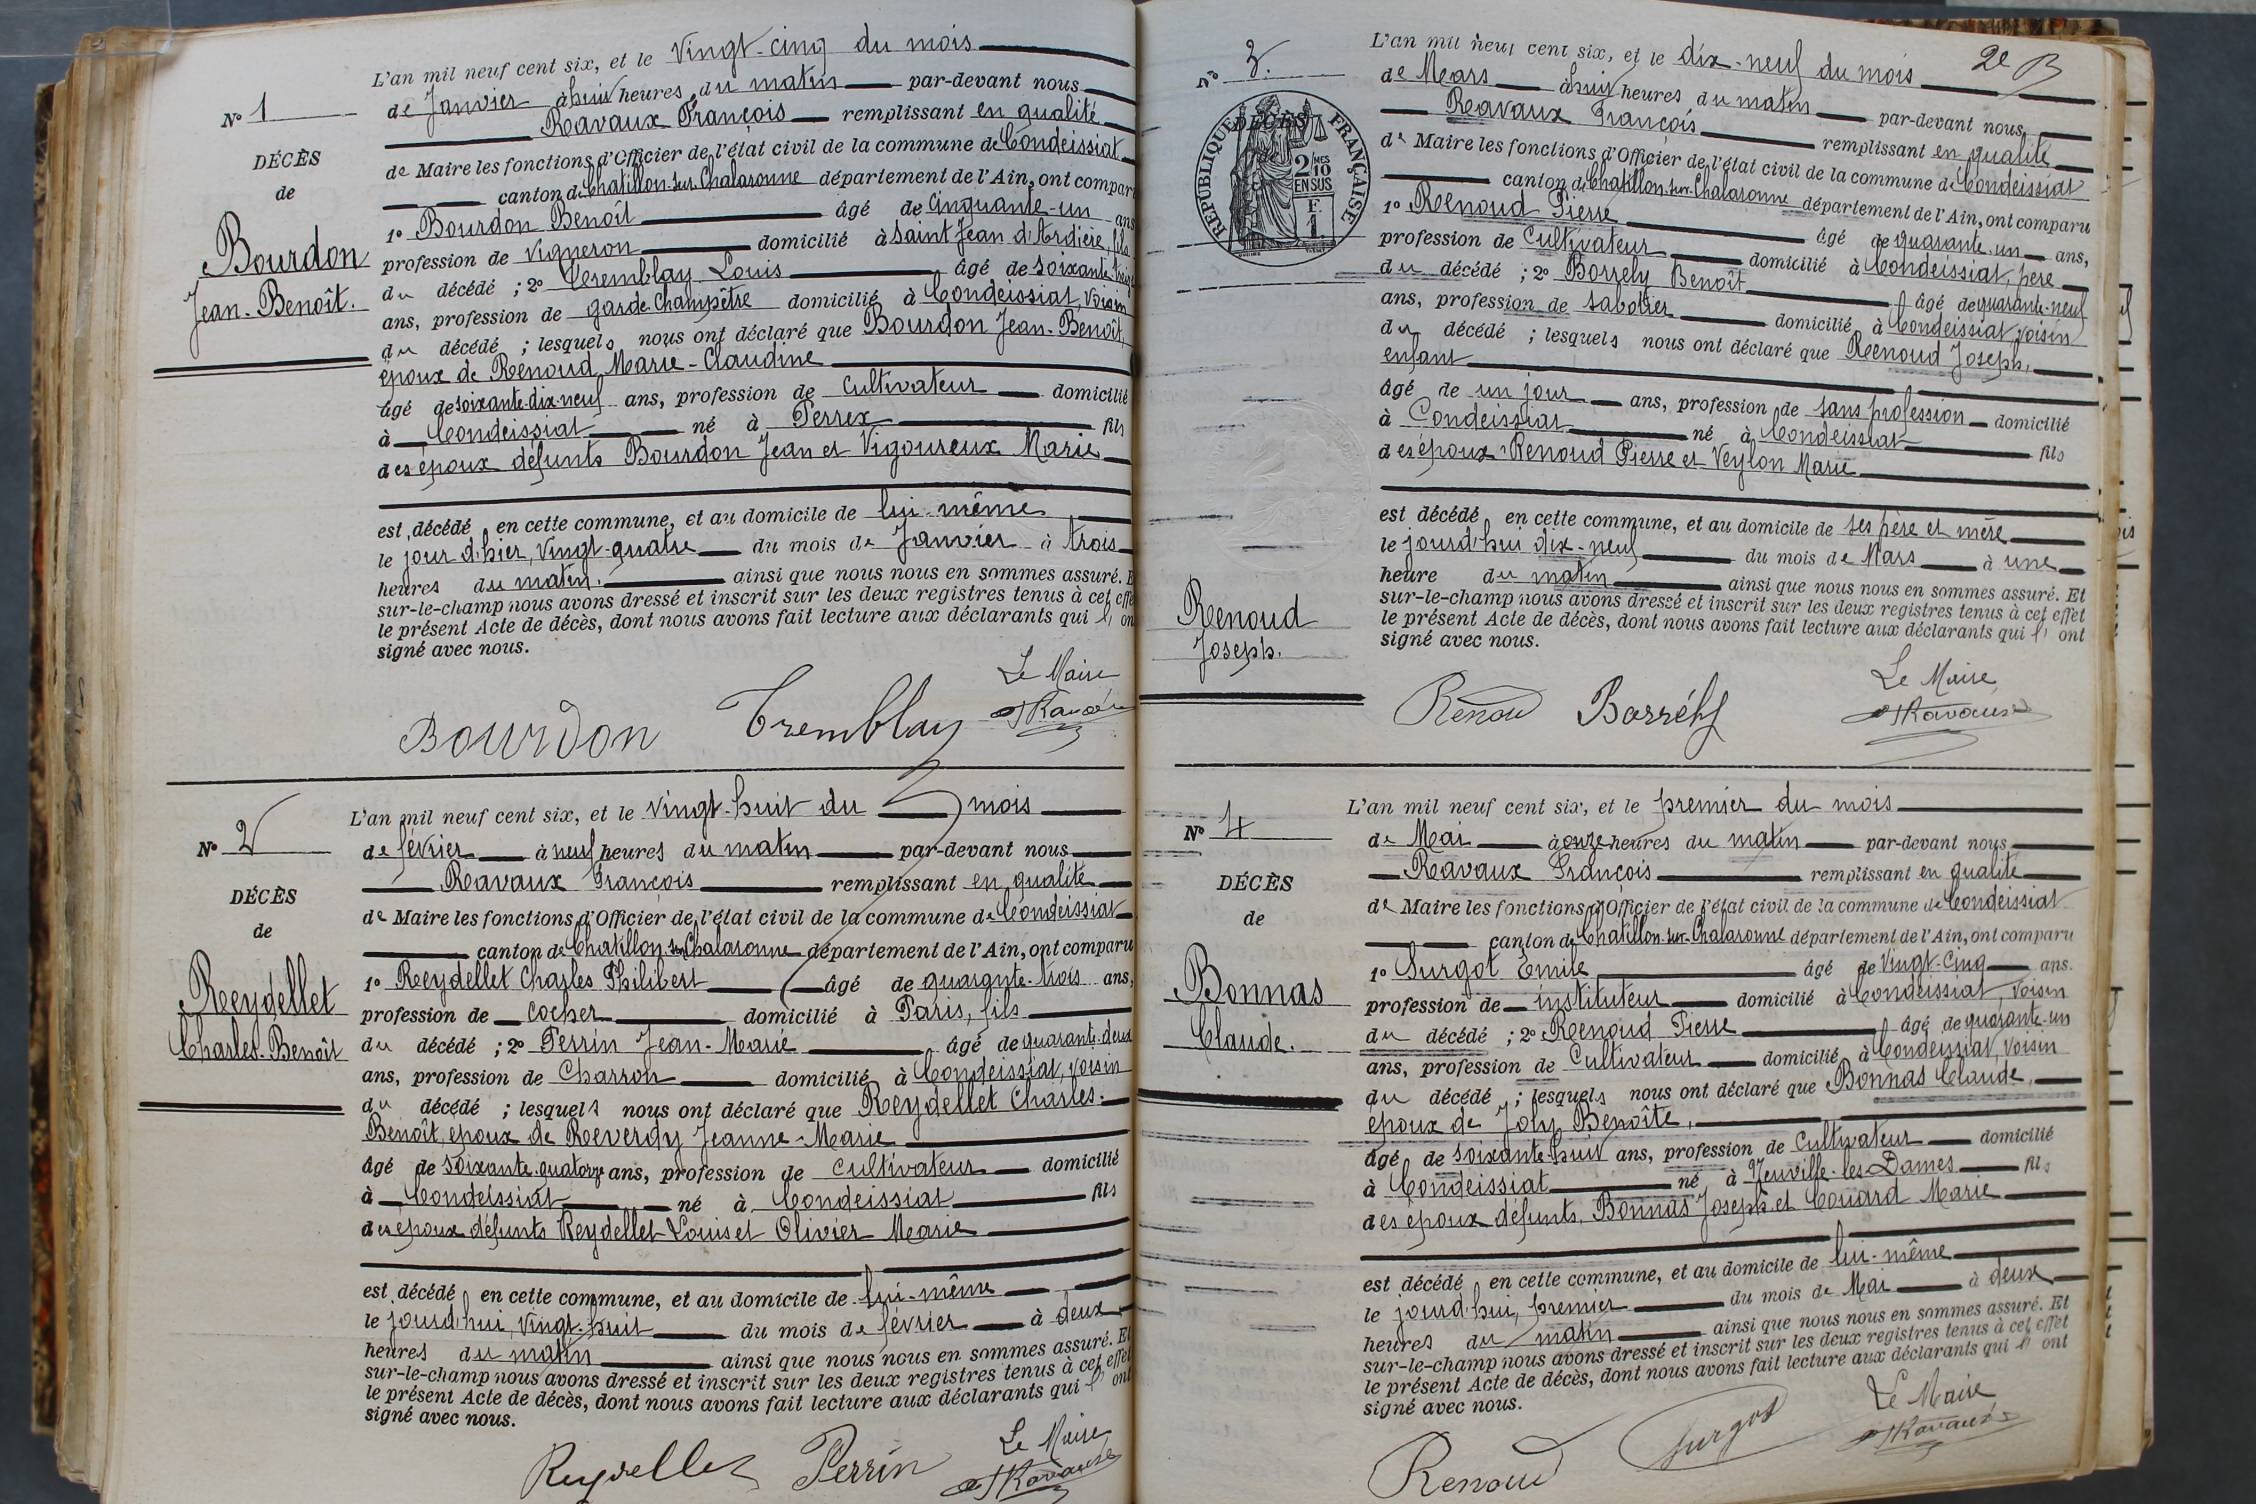 N° 1
DÉCÈS
de
Bourdon
Jean-Benoît.
L'an mil neuf cent six, et le vingt-cinq du mois
de Janvier à huit heures du matin par-devant nous
Ravaux François remplissant en qualité
de Maire les fonctions d'Officier de l'état civil de la commune de Condeissiat
canton de Chatillon-sur-Chalaronne département de l'Ain, ont compar
1° Bourdon Benoît âgé de cinquante-un ans
profession de Vigneron domicilié à Saint Jean d'Ardière, fils
du décédé ; 2° Tremblay Louis âgé de soixante
ans, profession de garde-champêtre domicilié à Condeissiat, voisin
du décédé ; lesquels nous ont déclaré que Bourdon Jean-Benoît,
époux de Renoud Marie-Claudine
âgé de soixante-dix-neuf ans, profession de cultivateur domicilié
à Condeissiat né à Perrex fils
des époux défunts Bourdon Jean et Vigoureux Marie
est décédé en cette commune, et au domicile de lui-même
le jour d'hier, vingt-quatre du mois de Janvier à trois
heures du matin. ainsi que nous nous en sommes assuré. E
sur-le-champ nous avons dressé et inscrit sur les deux registres tenus à cet effe
le présent Acte de décès, dont nous avons fait lecture aux déclarants qui l' on
signé avec nous.
Le Maire
Bourdon Tremblay Ravaux
N° 2
DÉCÈS
de
Reydellet
Charles-Benoît
L'an mil neuf cent six, et le vingt-huit du mois
de février à neuf heures du matin par-devant nous
Ravaux François remplissant en qualité
de Maire les fonctions d'Officier de l'état civil de la commune de Condeissiat
canton de Chatillon-sur-Chalaronne département de l'Ain, ont comparu
1° Reydellet Charles Philibert âgé de quarante-trois ans,
profession de cocher domicilié à Paris, fils
du décédé ; 2° Perrin Jean-Marie âgé de quarante-deux
ans, profession de Charron domicilié à Condeissiat, voisin
du décédé ; lesquels nous ont déclaré que Reydellet Charles-
Benoît, époux de Reverdy Jeanne-Marie
âgé de soixante-quatorze ans, profession de cultivateur domicilié
à Condeissiat né à Condeissiat fils
des époux défunts Reydellet Louis et Olivier Marie
est décédé en cette commune, et au domicile de lui-même
le jourd'hui, vingt-huit du mois de février à deux
heures du matin ainsi que nous nous en sommes assuré. Et
sur-le-champ nous avons dressé et inscrit sur les deux registres tenus à cet effet
le présent Acte de décès, dont nous avons fait lecture aux déclarants qui l' ont
signé avec nous.
Le Maire
Reydellet Perrin Ravaux
2e B
N° 3.
DÉCÈS
RÉPUBLIQUE FRANÇAISE
2/MES
10
EN SUS
F.
1.
Renoud
Joseph.
L'an mil neuf cent six, et le dix-neuf du mois
de Mars à huit heures du matin par-devant nous
Ravaux François remplissant en qualité
de Maire les fonctions d'Officier de l'état civil de la commune de Condeissiat
canton de Chatillon-sur-Chalaronne département de l'Ain, ont comparu
1° Renoud Pierre âgé de quarante-un ans,
profession de Cultivateur domicilié à Condeissiat, père
du décédé ; 2° Borrely Benoît âgé de quarante-neuf
ans, profession de sabotier domicilié à Condeissiat, voisin
du décédé ; lesquels nous ont déclaré que Renoud Joseph,
enfant
âgé de un jour ans, profession de sans profession domicilié
à Condeissiat né à Condeissiat fils
des époux Renoud Pierre et Veylon Marie
est décédé en cette commune, et au domicile de ses père et mère
le jourd'hui dix-neuf du mois de Mars à une
heure du matin ainsi que nous nous en sommes assuré. Et
sur-le-champ nous avons dressé et inscrit sur les deux registres tenus à cet effet
le présent Acte de décès, dont nous avons fait lecture aux déclarants qui l' ont
signé avec nous.
Le Maire
Renoud Borrély Ravaux
N° 4
DÉCÈS
de
Bonnas
Claude.
L'an mil neuf cent six, et le premier du mois
de Mai à onze heures du matin par-devant nous
Ravaux François remplissant en qualité
de Maire les fonctions d'Officier de l'état civil de la commune de Condeissiat
canton de Chatillon-sur-Chalaronne département de l'Ain, ont comparu
1° Surgot Emile âgé de vingt-cinq ans.
profession de instituteur domicilié à Condeissiat, voisin
du décédé ; 2° Renoud Pierre âgé de quarante-un
ans, profession de Cultivateur domicilié à Condeissiat, voisin
du décédé ; lesquels nous ont déclaré que Bonnas Claude,
époux de Joly Benoîte,
âgé de soixante-huit ans, profession de Cultivateur domicilié
à Condeissiat né à Neuville-les-Dames fils
des époux défunts, Bonnas Joseph et Couard Marie
est décédé en cette commune, et au domicile de lui-même
le jourd'hui, premier du mois de Mai à deux
heures du matin ainsi que nous nous en sommes assuré. Et
sur-le-champ nous avons dressé et inscrit sur les deux registres tenus à cet effet
le présent Acte de décès, dont nous avons fait lecture aux déclarants qui l' ont
signé avec nous.
Le Maire
Renoud Surgot Ravaux